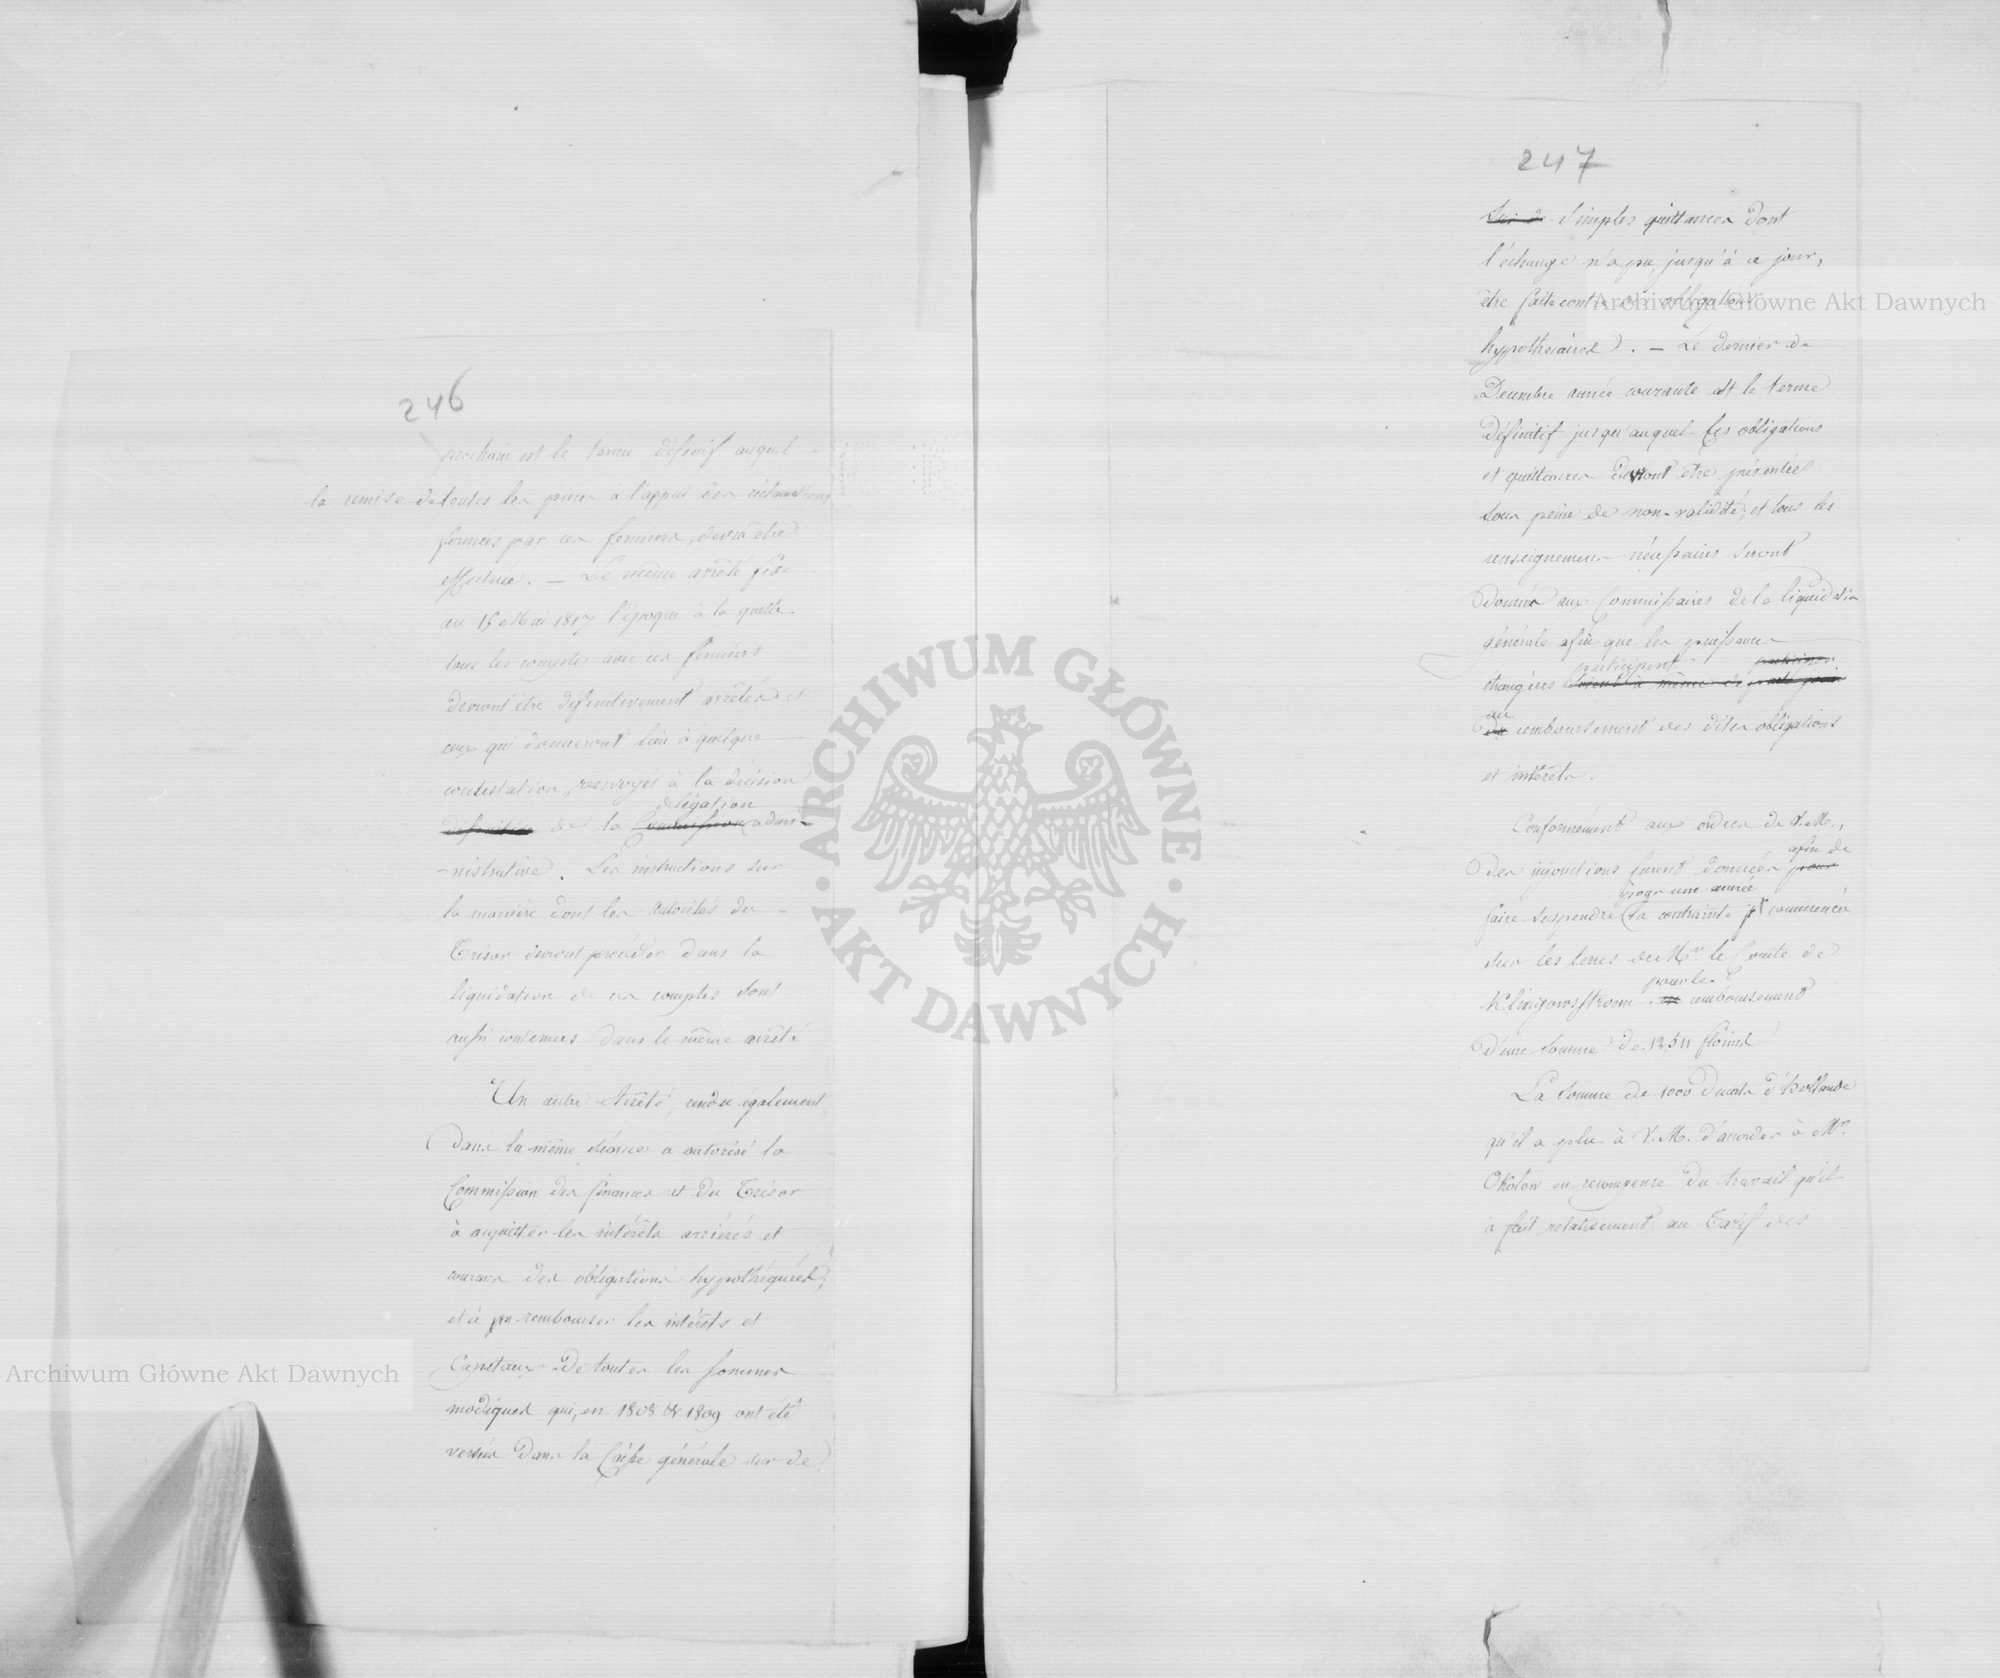 246
prochain est le terme définif auquel
la remise de toutes les pièces à l'appui des réclamations
formées par ces fermiers, devra être
effectuée. — Le même arrêté fixe
au 15 Mai 1817 l'époque à la quelle
tous les comptes avec ces fermiers
devront être définitivement arrêtés et
ceux qui donneront lieu à quelque
contestation, renvoyés à la décision
délégation
définitive de la Commission admi-
-nistrative. Les instructions sur
la manière dont les autorités du
Trésor devront procéder dans la
liquidation de ces comptes sont
aussi contenues dans le même arrêté
Un autre Arrêté, rendu également
dans la même séance a autorisé la
Commission des finances et du Trésor
à acquitter les intérêts arriérés et
courans des obligations hypothéquées;
et à rembourser les intérêts et
Capitaux de toutes les sommes
modiques qui, en 1808 & 1809 ont été
versées dans la Caisse générale sur de
247
sur de simples quittances dont
l'échange n'a pu, jusqu'à ce jour,
être faite contre des obligations
hypothécaires. — Le dernier de
Decembre année courante est le terme
définitif jusqu'auquel les obligations
et quittances devront être présentées
sous peine de non-validité; et tous les
renseignemens nécessaires seront
donnés aux Commissaires de la liquidation
générale afin que les puissances
participent
étrangères soient à même de
au
du remboursement des dites obligations
et intérêts.
Conformément aux ordres de V. M.,
afin de
des injonctions furent données pour
pour une année
faire suspendre la contrainte commencée
sur les terres de Mr. le Comte de
pour le
Klingowsstroem remboursement
d'une somme de 12,511 florins
La somme de 1000 Ducats d'hollande
qu'il a plu à V. M. d'accorder à Mr.
Okolow en recompense du travail qu'il
a fait relativement au Tarif des
Archiwum Główne Akt Dawnych
Archiwum Główne Akt Dawnych
ARCHIWUM GŁÓWNE · AKT DAWNYCH ·